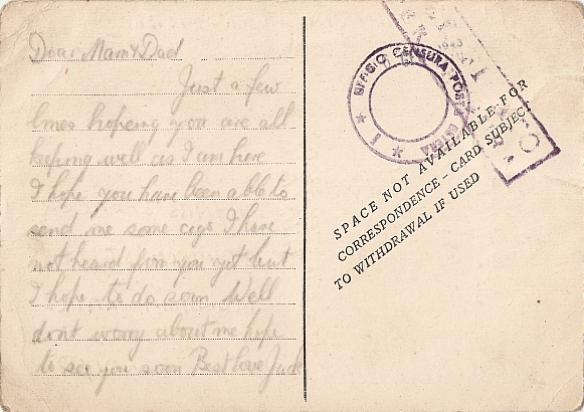 Dear Mam & Dad
Just a few
lines hopeing you are all
keeping well as I am here
I hope you have been able to
send me some cigs I have
not heard from you yet but
I hope to do soon Well
dont worry about me hope
to see you soon Best love Jack
UFFICIO CENSURA POSTA ESTERA
1
SPACE NOT AVAILABLE FOR
CORRESPONDENCE – CARD SUBJECT
TO WITHDRAWAL IF USED